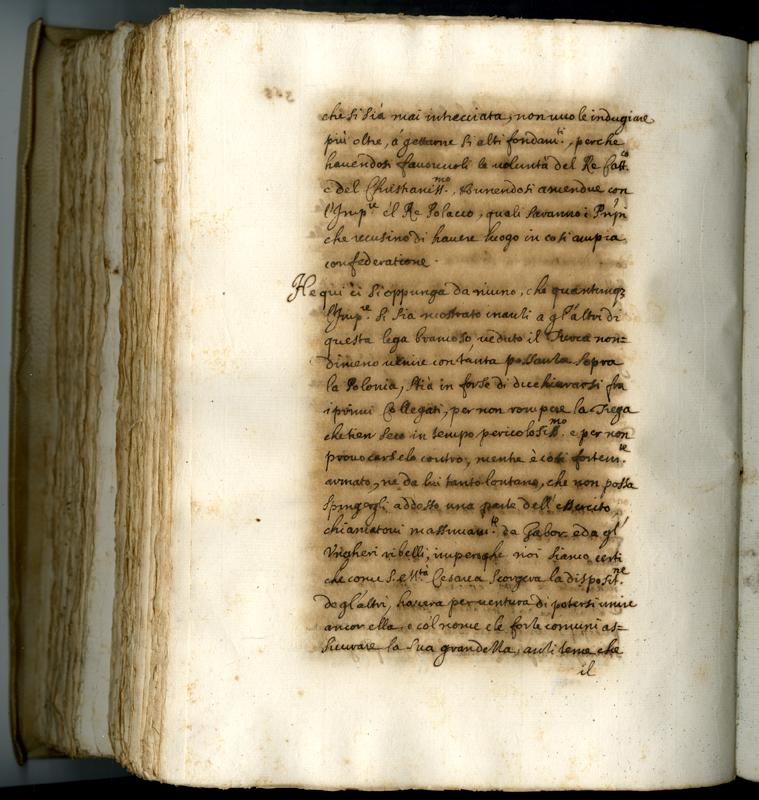 che si sia mai intrecciata, non vuo le indugiare
più oltre, à gettarne si alti fondam.ti, perche
havendosi favorevoli le voluntà del Re Catt.co
e del Christianiss.mo, & unendosi amendue con
l'Imp.re e'l Re Polacco, quali saranno i Prñpi
che recusino di havere luogo in cosi ampia
confederatione.
Ne qui ci si oppunga da niuno, che quantunq3
l'Imp.re si sia mostrato inanzi a gl'altri di
questa lega bramoso, veduto il Turca non=
dimeno venire con tanta possanza sopra
la Polonia, stia in forse di dicchiararsi fra
i primi Collegati, per non rompere la Trega
che tien seco in tempo pericolosiss.mo e per non
provocarselo contro, mentre è così fortem.te
armato, ne da lui tanto lontano, che non possa
spingergli addosso una parte dell'essercito,
chiamatovi massimam.te da Gabor e da gl'
Ungheri ribelli, imperoche noi siamo certi
che come S. M.tà Cesarea scorgera la disposit.ne
de gl'altri, havera per ventura di potersi unire
ancor ella, e col nome e le forze comuni as=
sicurare la sua grandezza, anzi teme che
il